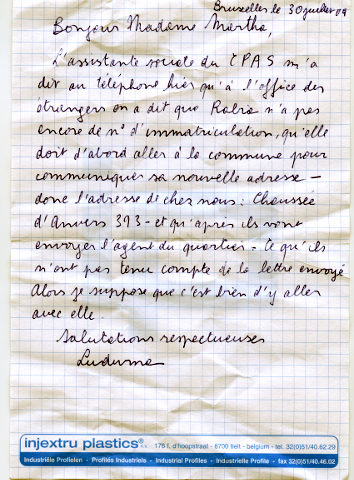 Bruxelles le 30 juillet 09
Bonjour Madame Martha,
L'assistante sociale du CPAS m'a
dit au téléphone hier qu'à l'office des
étrangers on a dit que Rabia n'a pas
encore de n° d'immatriculation, qu'elle
doit d'abord aller à la commune pour
communiquer sa nouvelle adresse –
donc l'adresse de chez nous : Chaussée
d'Anvers 393 - et qu'après ils vont
envoyer l'agent du quartier - Ce qu'ils
n'ont pas tenu compte de la lettre envoyé
Alors je suppose que c'est bien d'y aller
avec elle.
Salutations respectueuses
injextru plastics® n.v. 176 f, d'hoopstraat - 8700 tielt - belgium - tel. 32(0)51/40.62.29
Industriële Profielen - Profilés Industriels - Industrial Profiles - Industrielle Profile - fax 32(0)51/40.46.02